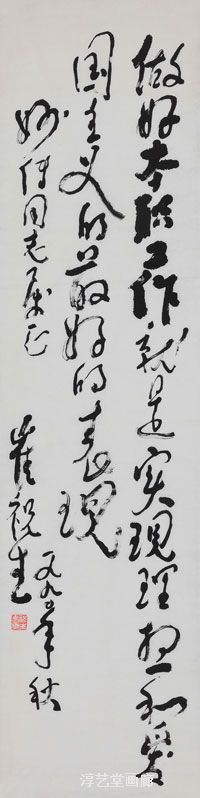 做好本职工作就是实现理想和爱
国主义的最好的表现
妙传同志属正
崔祝生 一九九〇年秋
淳艺堂画廊